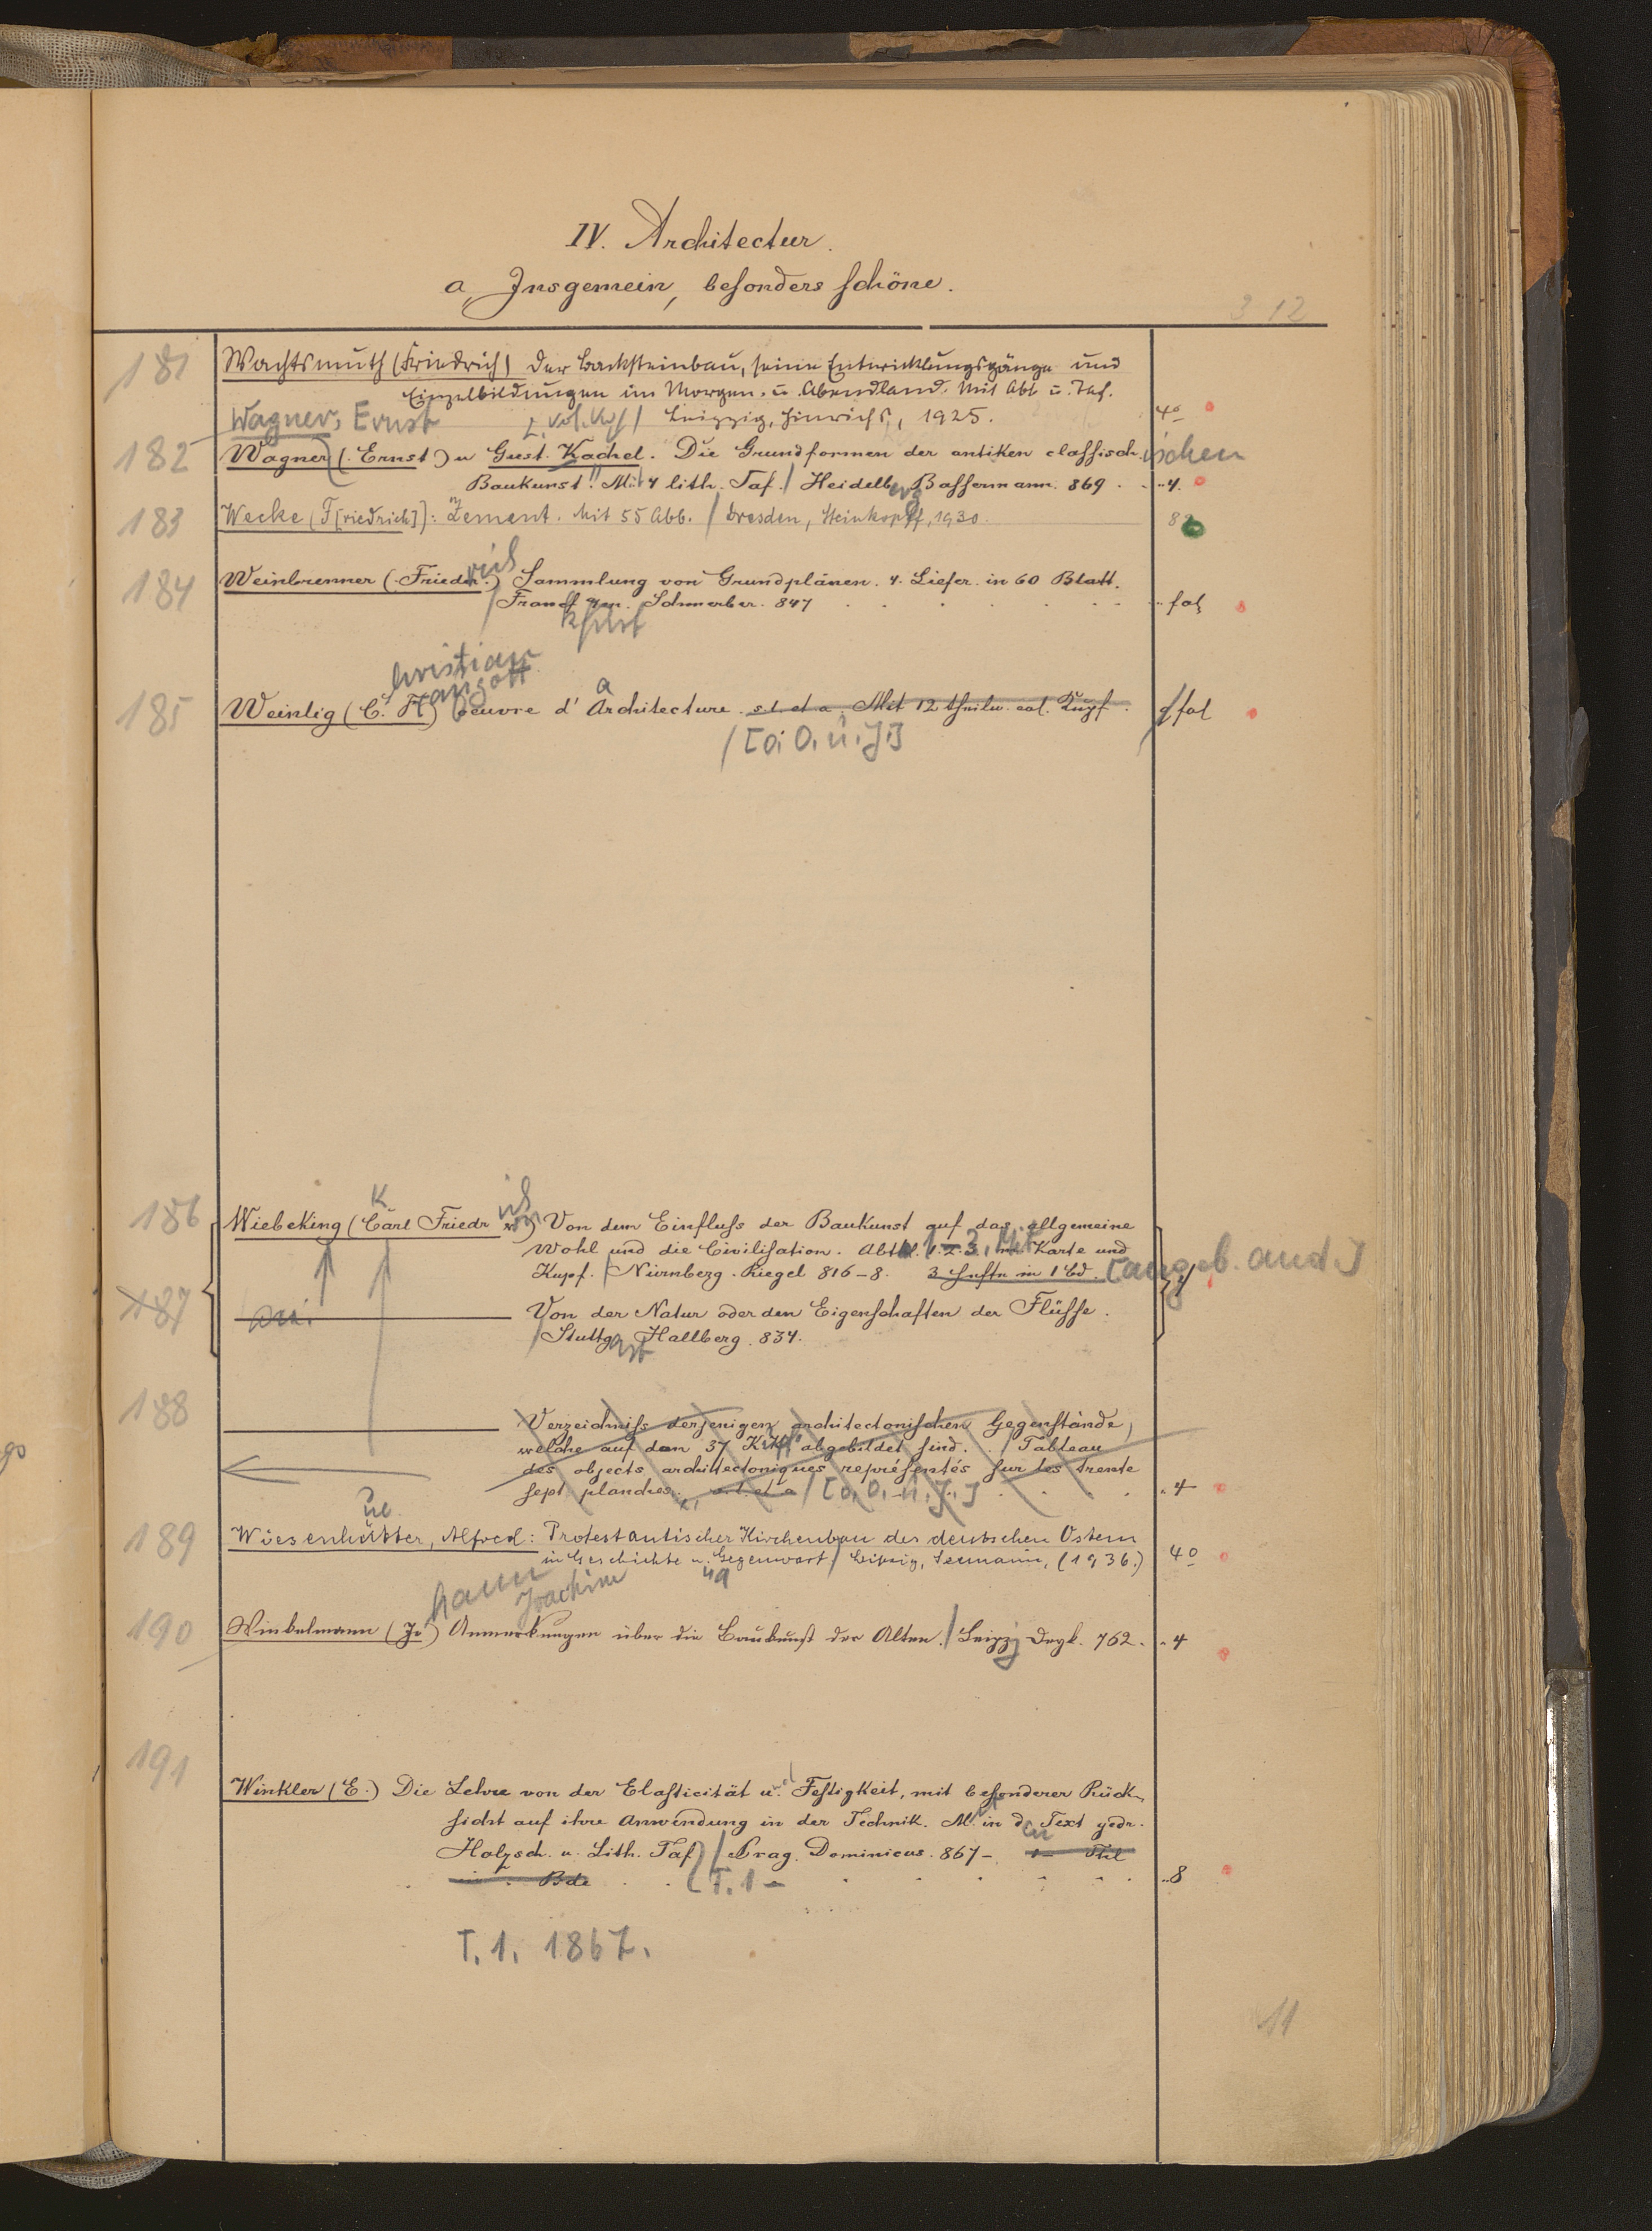 IV. Architectur.
a, Insgemein, besonders schöne.
3 12
181 Wachtsmuth (Friedrich) Der Backsteinbau, seine Entwicklungsgänge und
Einzelbildungen im Morgen- u. Abendland. Mit Abb u. Taf.
Wagner, Ernst Leipzig, Hinrichs, 1925. 4º
182 Wagner (Ernst) u Gust. Kachel. Die Grundformen der antiken classischischen
Baukunst. Mit 4 lith. Taf. / Heidelberg Bassermann. 869. 4.
183 Wecke (F[riedrich]): Zement. Mit 55 Abb. / Dresden, Steinkopff, 1930. 8º
184 Weinbrenner (Friedrich) Sammlung von Grundplänen. 4. Liefer. in 60 Blatt.
/ Frankfurt Schmerber. 847 fol
Christian
185 Weinlig (C. T.) Oeuvre d' Architecture s. l. et a. Mit 12 theilw. col. Kupf. / fol
/ [o. O. u. J.]
K
186 Wiebeking (Carl Friedrich von) Von dem Einfluss der Baukunst auf das allgemeine
Wohl und die Civilisation. Abth. 1-3, Mit Karte und
Kupf. / Nürnberg. Riegel 816-8. 3 Hefte in 1 Bd. [angeb. and.]
187 Von der Natur oder den Eigenschaften der Flüsse.
/ Stuttgart Hallberg. 834.
188 Verzeichniss derjenigen architectonischen Gegenstände,
welche auf den 37 abgebildet sind. / Tableau
des objects architectoniques représentés sur les trente
sept planches. s. l. et a / [o. O. u. J.] 4
189 Wiesenhütter, Alfred: Protestantischer Kirchenbau des deutschen Ostens
in Geschichte u. Gegenwart / Leipzig, Seemann, (1936.) 4º
hann Joachim
190 Winkelmann (Jo) Anmerkungen über die Baukunst der Alten. / Leipzig Dyk. 762. 4
191 Winkler (E.) Die Lehre von der Elasticität und Festigkeit, mit besonderer Rück-
sicht auf ihre Anwendung in der Technik. M. in den Text gedr.
Holzsch. u. Lith. Taf) / Prag. Dominicus. 867-
Bde (T. 1 - 8
T. 1. 1867.
11